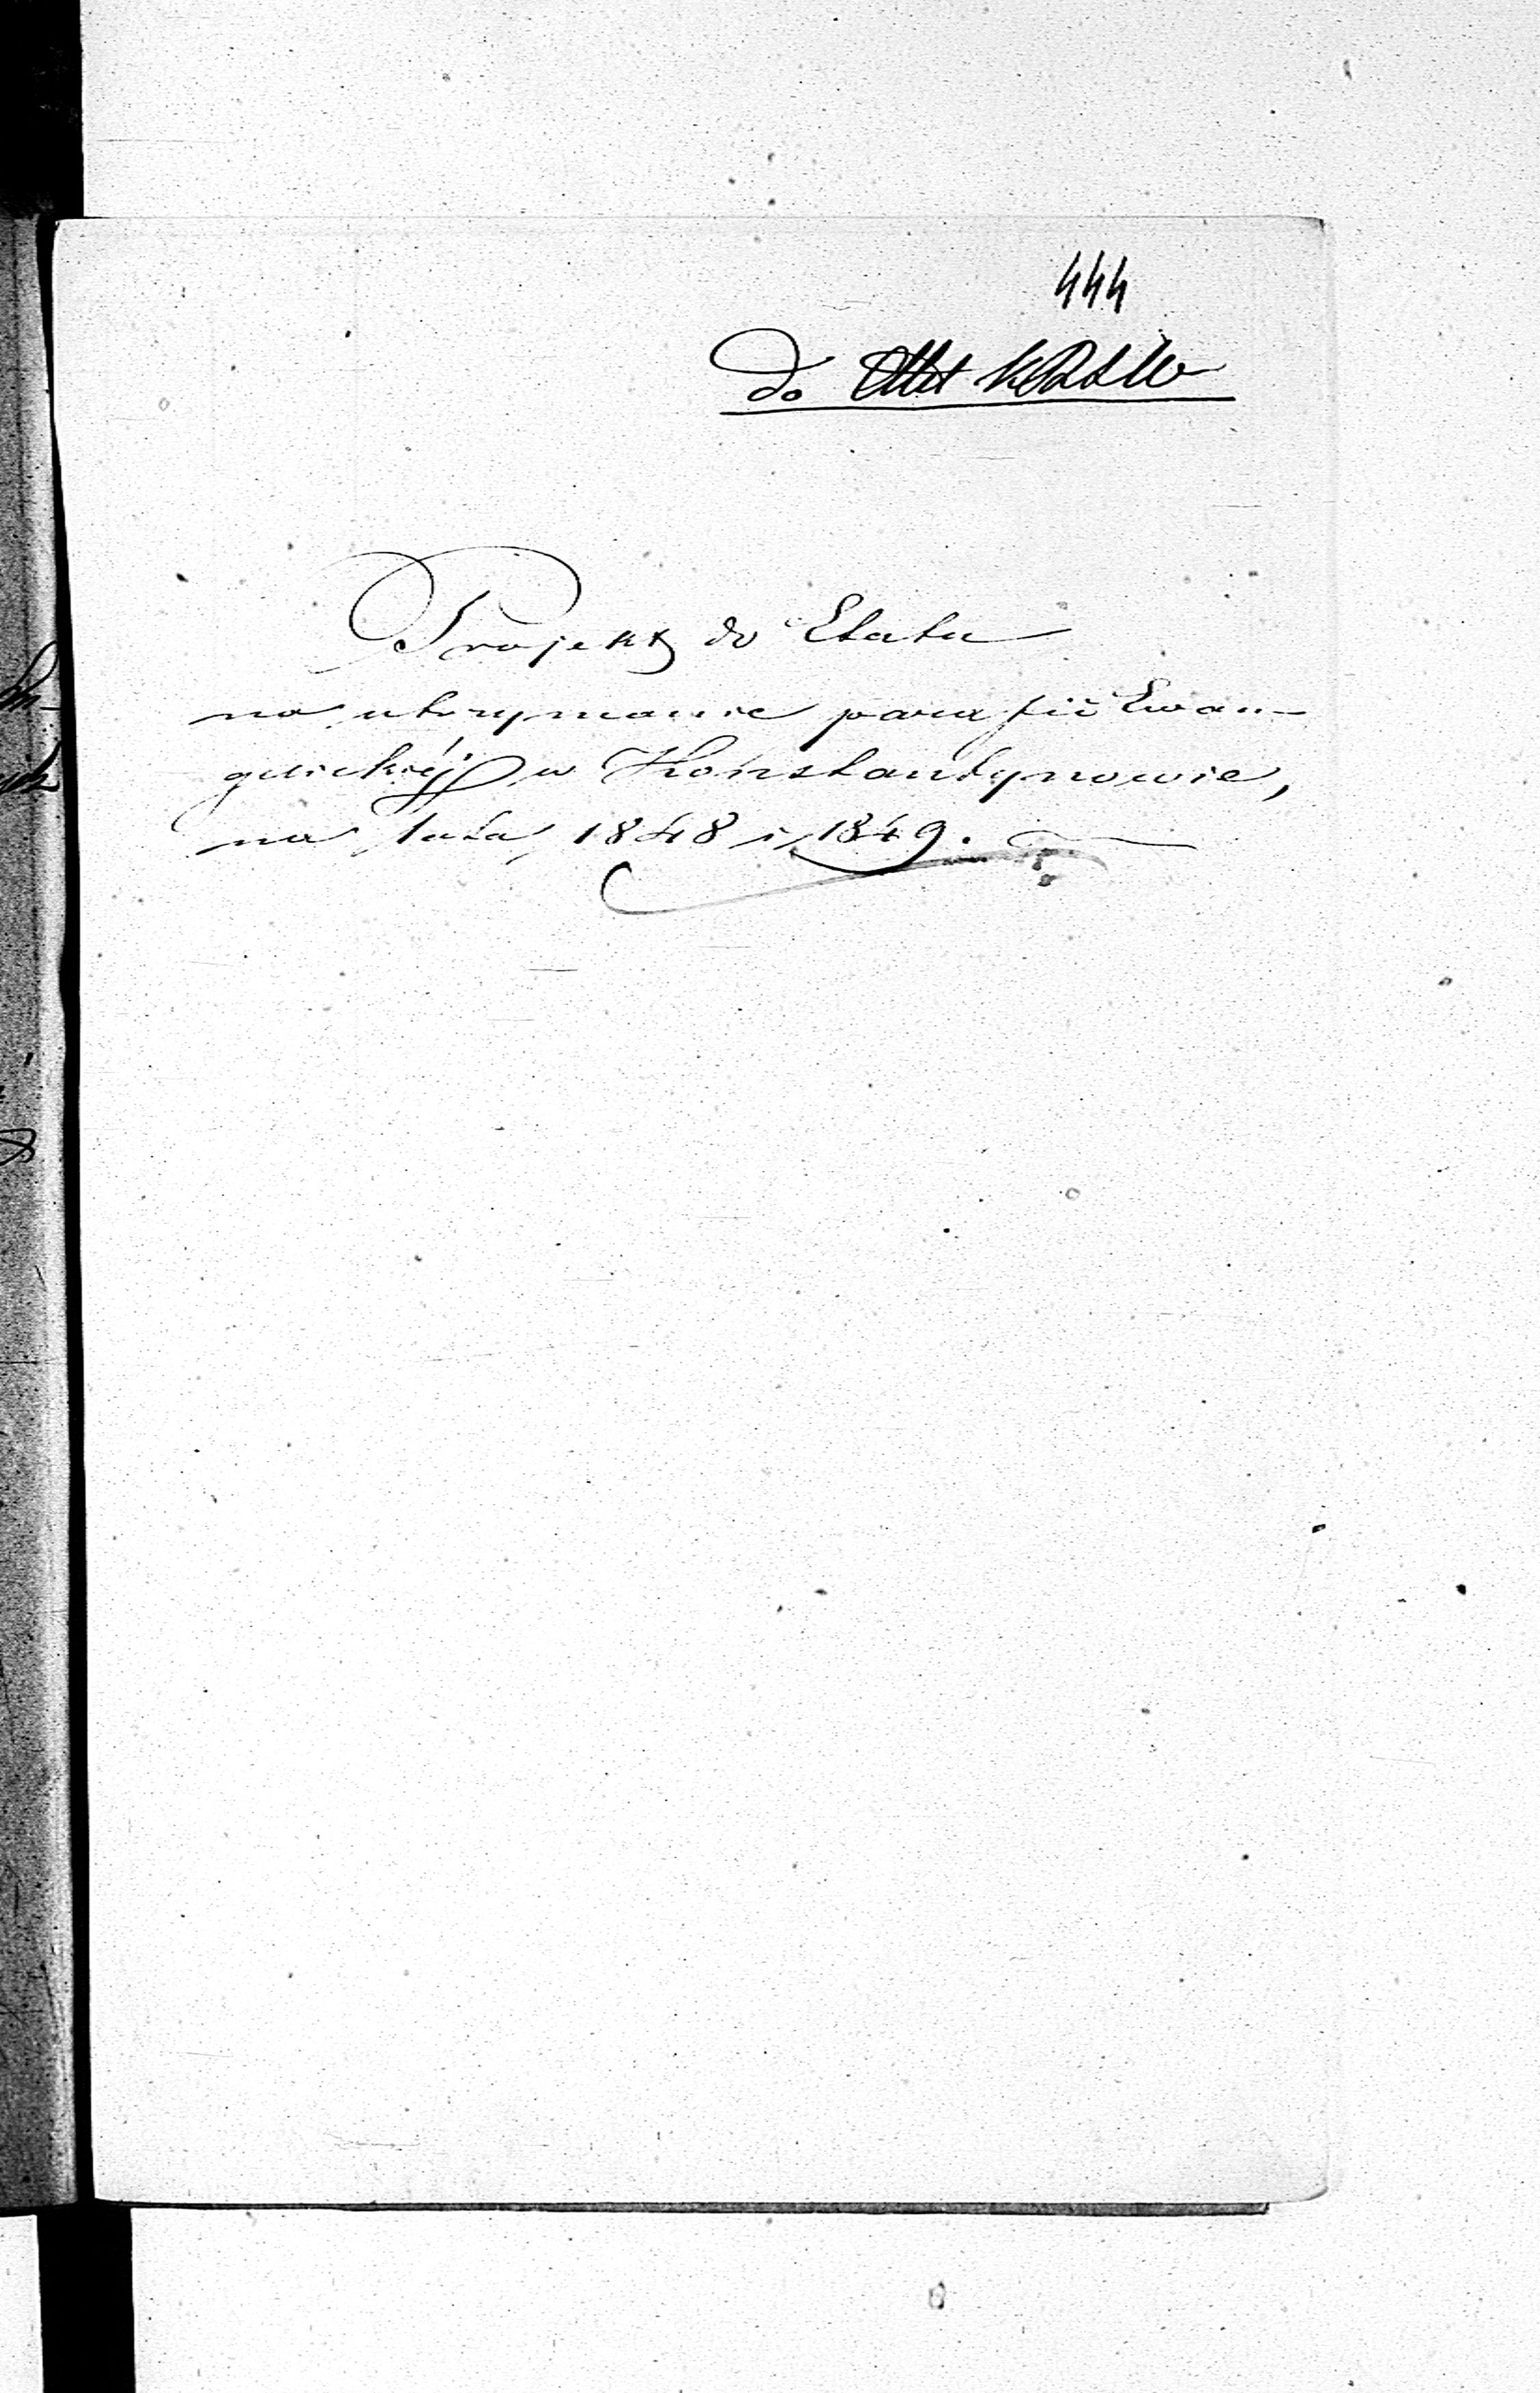 444
do
Projekt do Etatu
na utrzymanie parafii Ewan-
gelickiéj w Konstantynowie,
na lata 1848 i 1849.